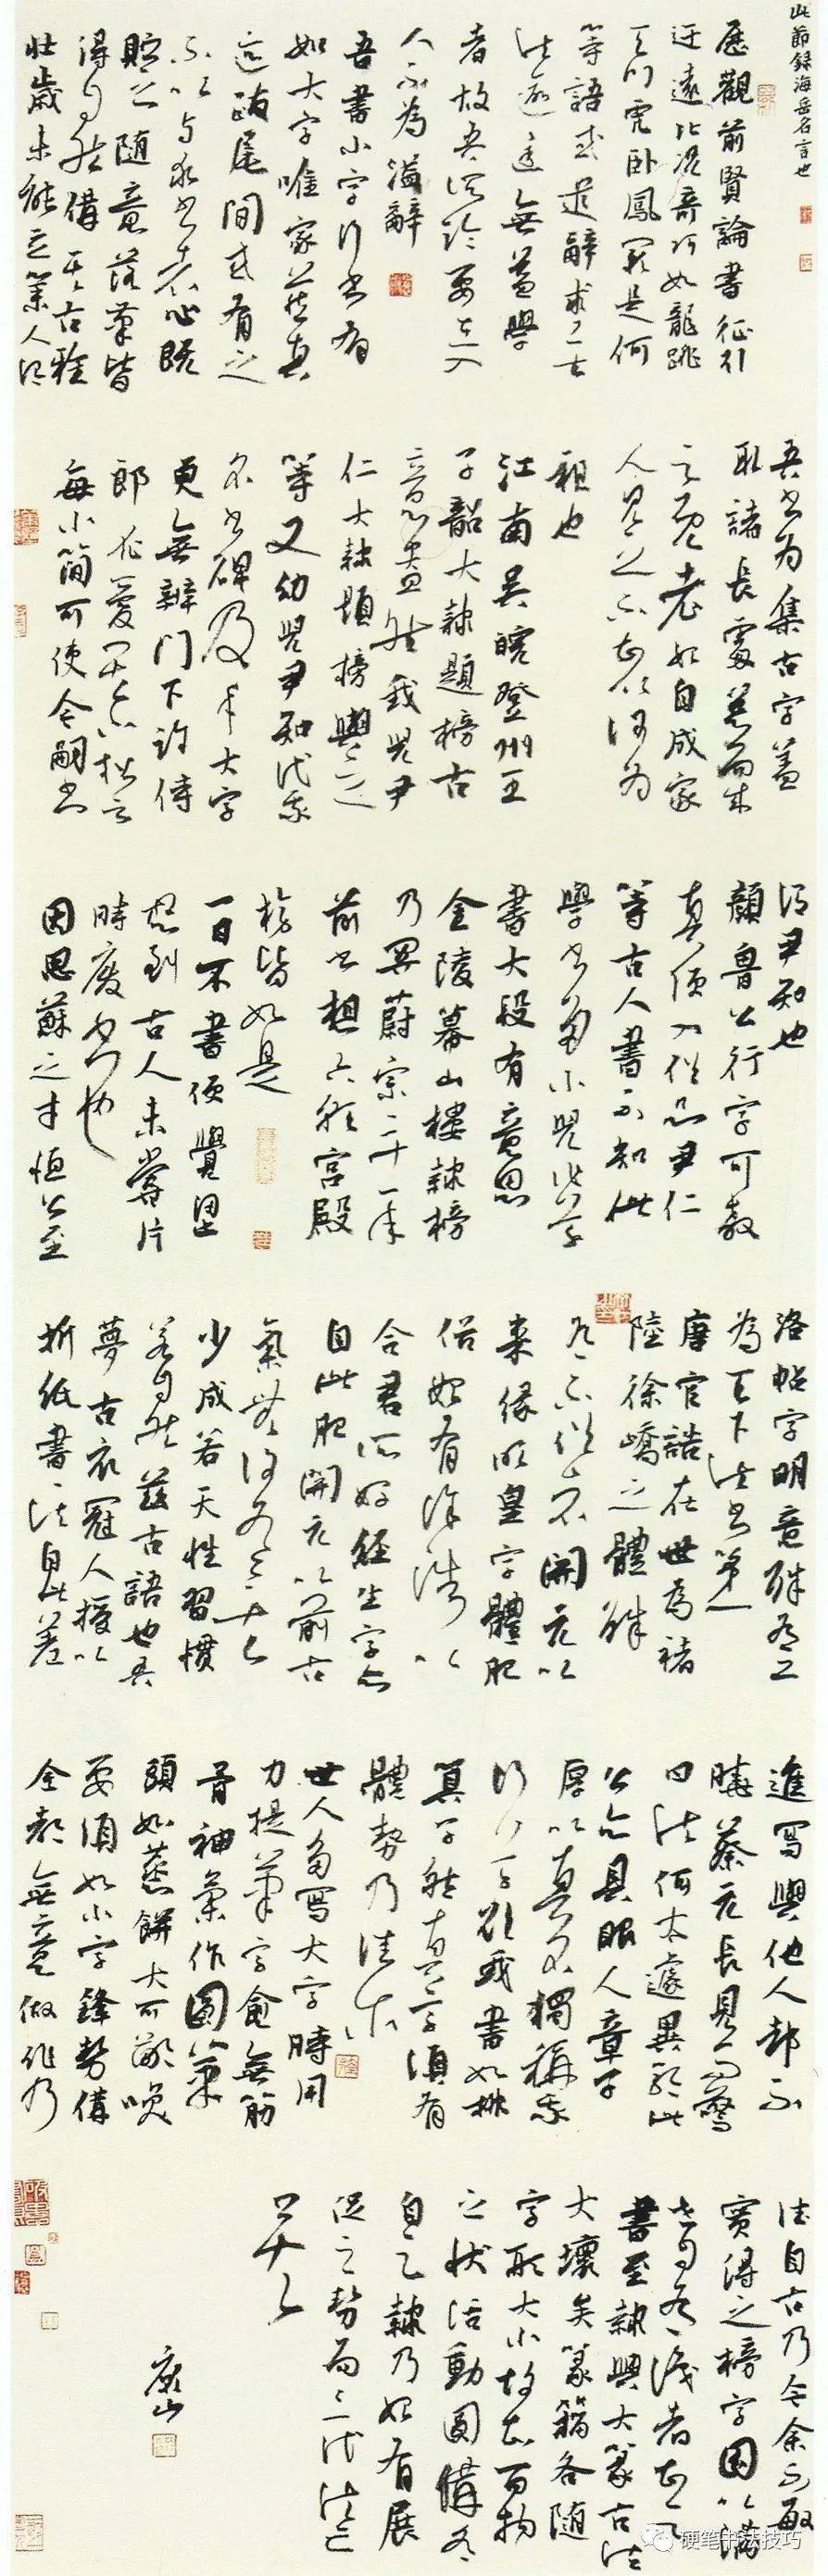 此節錄海岳名言也
歷觀前賢論書征引
迂遠比況奇巧如龍跳
天門虎臥鳳閣是何
等語或遣辭求工去
法逾遠無益學
者故吾所論要在入
人不為溢辭
吾書小字行書有
如大字唯家藏真
跡跋尾間或有之
不以與求書者心既
貯之隨意落筆皆
得自然備其古雅
壯歲未能立家人謂
吾書為集古字蓋
取諸長處總而成
之既老始自成家
人見之不知以何為
祖也
江南吳皖登州王
子韶大隸題榜古
意盎然我兒尹
仁大隸題榜與之
等又幼兒尹知代吾
名書碑及手大字
更無辨門下許侍
郎尤愛其小楷云
每小簡可使令嗣書
謂尹知也
顏魯公行字可教
真便入俗品尹仁
等古人書不知此
學吾書多小兒作草
書大段有意思
金陵幕山樓隸榜
乃關蔚宗二十一年
前書想六朝宮殿
榜皆如是
一日不書便覺思
想到古人未嘗片
時廢書也
因思蘇之才恒公至
洛帖字明意殊有工
為天下法書第一
唐官誥在世為褚
陸徐嶠之體殊
有不俗者開元以
來緣明皇字體肥
俗始有徐浩以
合君所好經生字亦
自此肥開元以前古
氣無復有
少成若天性習慣
若自然茲古語也吾
夢古衣冠人授以
折紙書法自此差
進寫與他人都不
曉蔡元長見而驚
曰法何太遽異耶此
公亦具眼人章子
厚以真自名獨稱吾
行草欲我書如排
算子然真字須有
體勢乃佳爾
世人多寫大字時用
力捉筆字愈無筋
骨神氣作圓筆
頭如蒸餅大可鄙笑
要須如小字鋒勢備
全都無意做作乃
佳自古乃今余不敏
實得之榜字固以滿
世自有識者知之
書至隸興大篆古法
大壞矣篆籀各隨
字形大小故知百物
之狀活動圓備各
自足隸乃始有展
促之勢而三代法亡
硬笔书法技巧